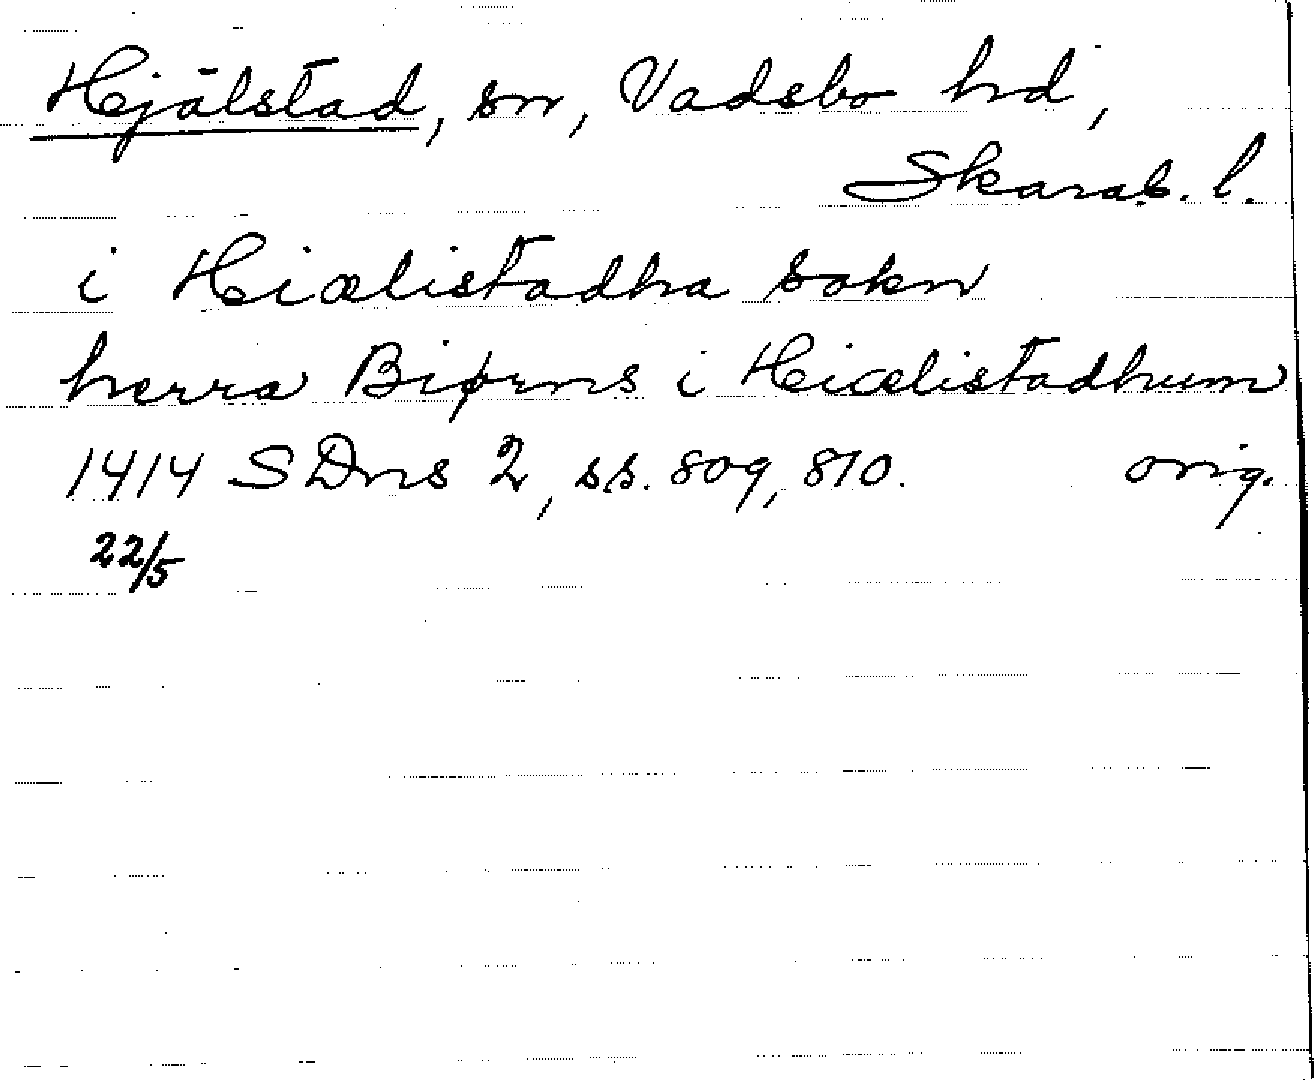 Hjälstad, sn, Vadsbo hd,
Skarab. l.
i Hiælistadha sokn
herra Biørns i Hiælistadhum
1414 SDns 2, ss. 809, 810. orig.
22/5